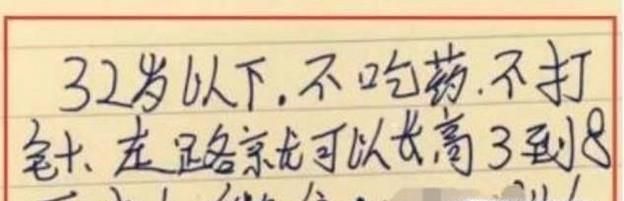 32岁以下.不吃药.不打
针、走路就可以长高3到8